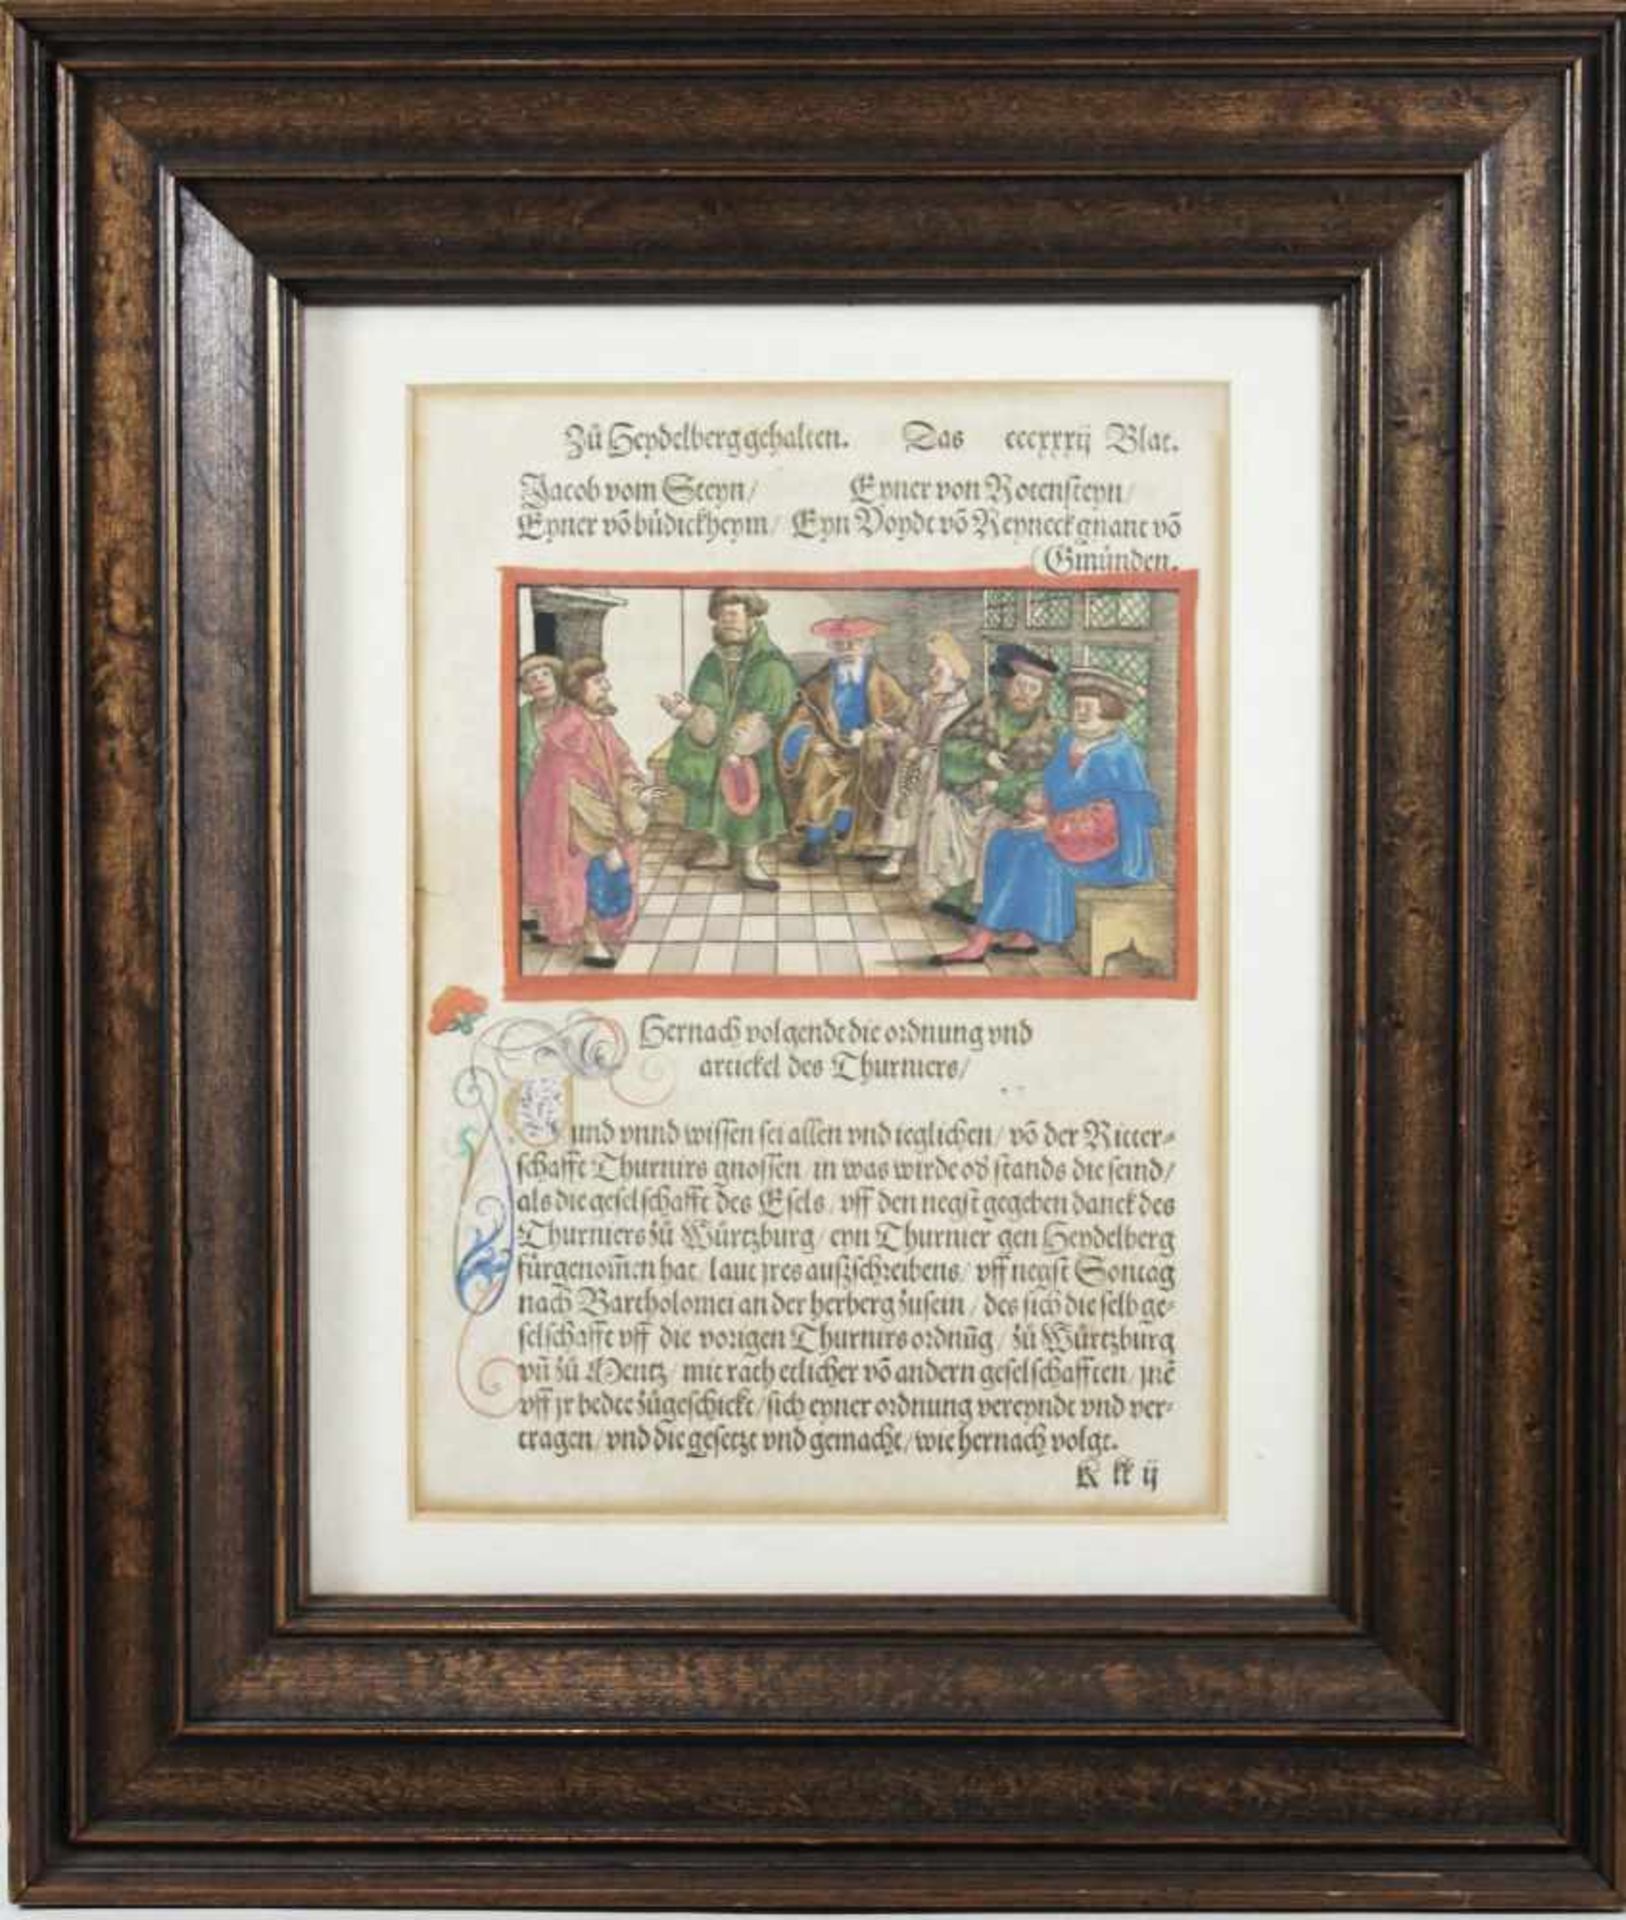 Zů Heydelberg gehalten. Das cccxxxij Blat.
Jacob vom Steyn/ Eyner von Rotensteyn/
Eyner võ bůdickheym/ Eyn Voydt võ Reyneck gnant võ
(Gmünden.
Hernach volgende die ordnung vnd
artickel des Thurniers/
Kund vnnd wissen sei allen vnd ieglichen/ võ der Ritter⸗
schafft Thurnirs gnossen/ in was wirde od stands die seind/
als die geselschafft des Esels/ vff den negst gegeben danck des
Thurniers zů Würtzburg/ eyn Thurnier gen Heydelberg
fürgenom̃en hat/ laut jres auſzschreibens/ vff negst Sontag
nach Bartholomei an der herberg zusein/ des sich die selb ge⸗
selschafft vff die vorigen Thurnirs ordnũg/ zů Würtzburg
vñ zů Mentz/ mit rath etlicher võ andern geselschafften/ jnẽ
vff jr bedte zůgeschickt/ sich eyner ordnung vereyndt vnd ver⸗
tragen/ vnd die gesetzt vnd gemacht/ wie hernach volgt.
K kk ij